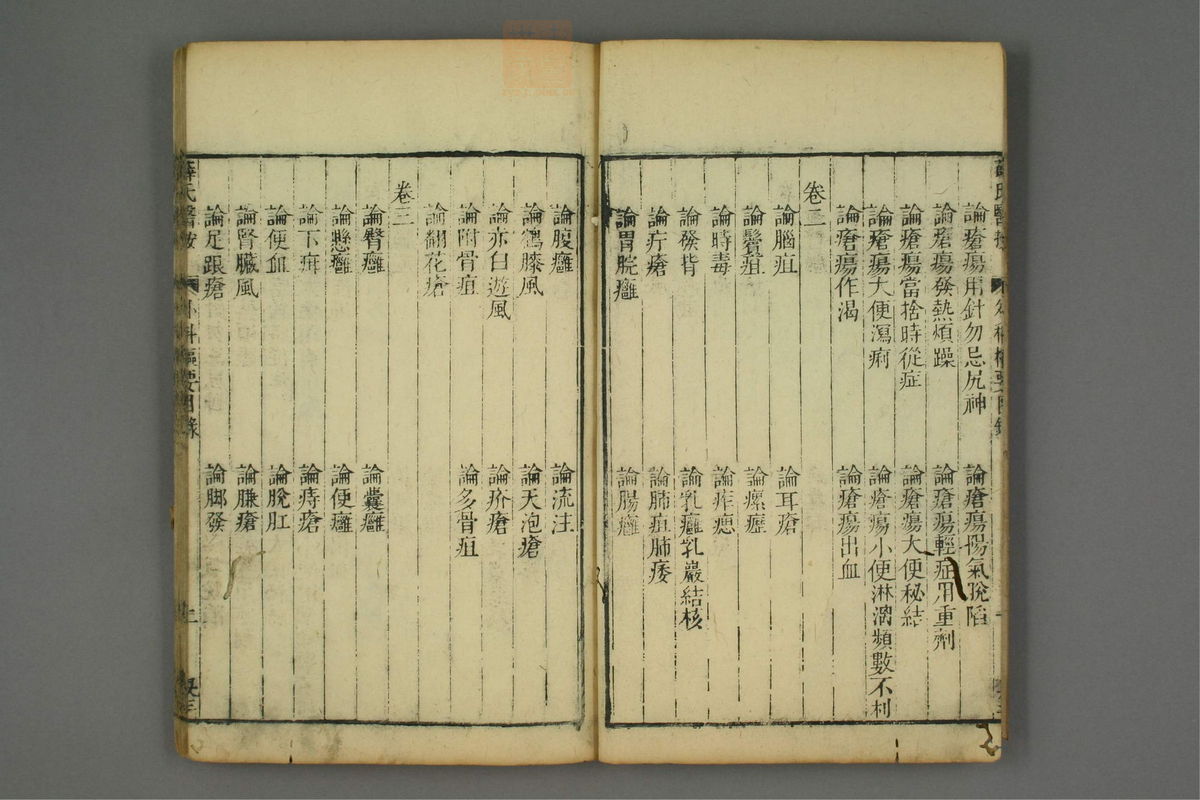 論瘡瘍用針勿忌尻神　論瘡瘍陽氣脫陷
論瘡瘍發熱煩躁　論瘡瘍輕症用重劑
論瘡瘍當捨時從症　論瘡瘍大便秘結
論瘡瘍大便瀉痢　論瘡瘍小便淋漓頻數不利
論瘡瘍作渴　論瘡瘍出血
卷二
論腦疽　論耳瘡
論鬢疽　論瘰癧
論時毒　論痄腮
論發背　論乳癰乳巖結核
論疔瘡　論肺疽肺痿
論胃脘癰　論腸癰
論腹癰　論流注
論鶴膝風　論天泡瘡
論赤白遊風　論疥瘡
論附骨疽　論多骨疽
論翻花瘡
卷三
論臀癰　論囊癰
論懸癰　論便癰
論下疳　論痔瘡
論便血　論脫肛
論腎臟風　論臁瘡
論足跟瘡　論脚發
薛氏醫按　外科樞要目錄